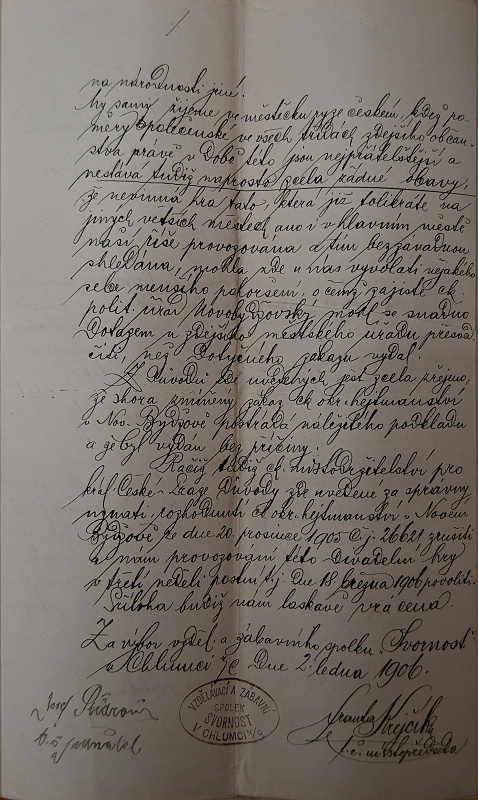 na národnosti jiné.
My samy žijeme ve městečku ryze českém, kdež po-
měry společenské ve všech třídách zdejšího občan-
stva právě v době této jsou nejpřátelštější a
nestává tudíž naprosto zcela žádné obavy,
že nevinná hra tato, která již tolikráte na
jiných větších městech, ano i v hlavním městě
naší říše provozována a tím bezzávadnou
shledána, mohla zde u nás vyvolati nějakého
sebe menšího pohoršení, o čemž zajisté ck.
polit. úřad Novobydžovský mohl se snadno
dotazem u zdejšího městského úřadu přesvěd-
čiti, než dotyčného zákazu vydal.
Z důvodů zde uvedených jest zcela zřejmo,
že shora zmíněný zákaz ck okr. hejtmanství
v Nov. Bydžově postrádá náležitého podkladu
a že byl vydán bez příčiny.
Račiž tudíž ck. místodržitelství pro
král. České v Praze důvody zde uvedené za správny
uznati, rozhodnutí ck okr. hejtmanství v Novém
Bydžově ze dne 20. prosince 1905 čj. 26621 zrušiti
a nám provozování této divadelní hry
v třetí neděli postní t.j. dne 18. března 1906 povoliti.
Příloha budiž nám laskavě vrácena.
Za výbor vzděl. a zábavního spolku "Svornost"
v Chlumci n/C dne 2. ledna 1906.
VZDĚLÁVACÍ A ZÁBAVNÍ
SPOLEK
SVORNOST
V CHLUMCI n/C
Josef
t.č. jednatel
Krejčík
t.č. místopředseda